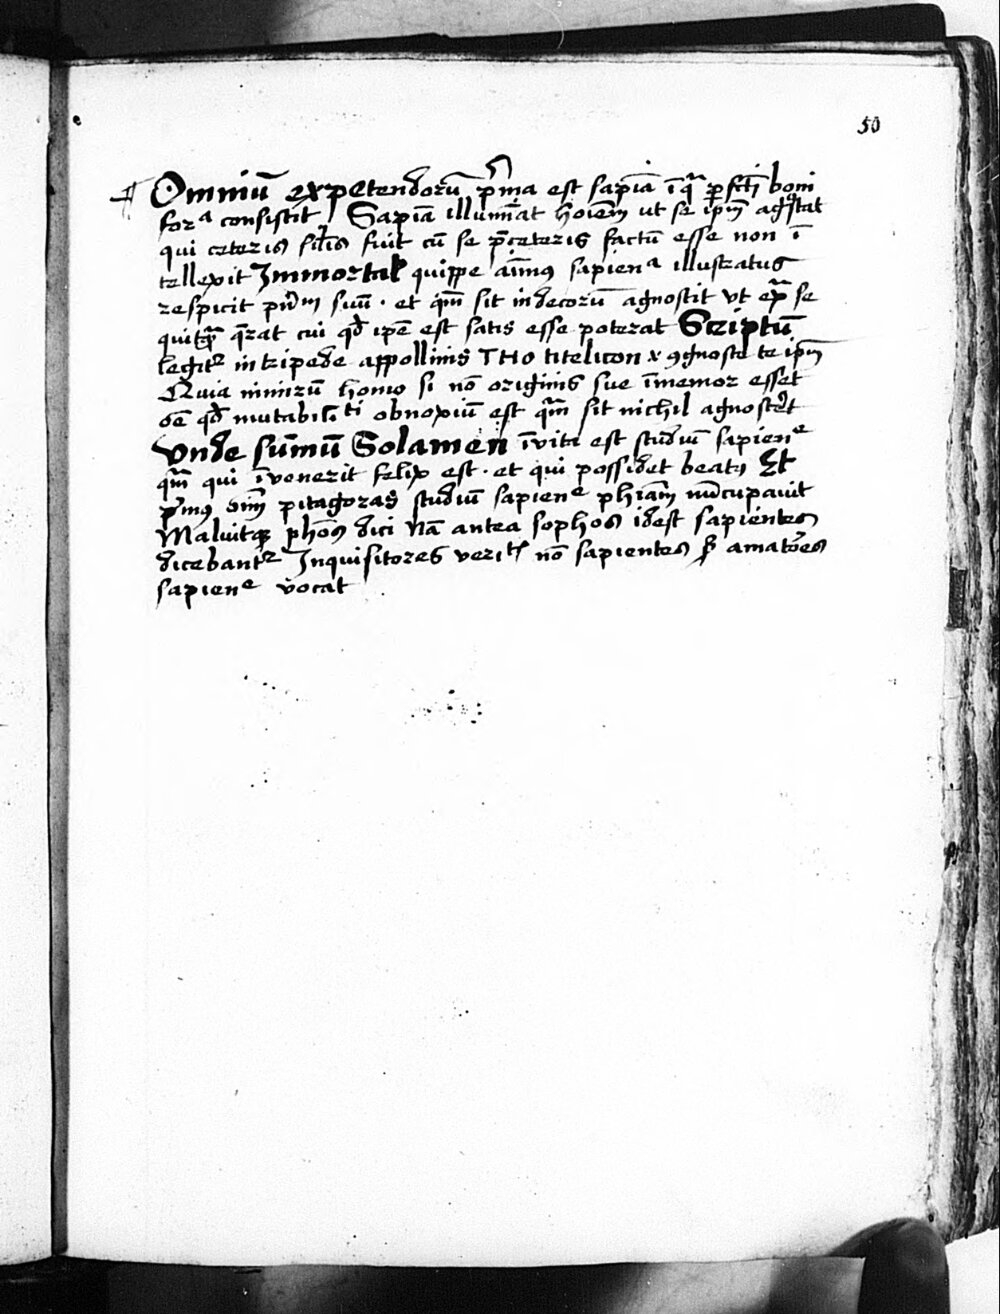 50
Omniū expetendorū p̄ma est sapiā ī q̄ ꝑfcti boni
forᵃ consistit Sapiā illumīat hoiēm ut se ipm̄ agnostat
qui ceteris silīs fuit cū se p̄ceteris factū esse non ī
tellexit Immortal quippe aīmꝰ sapienᵃ illustratus
respicit suū · et qm̄ sit indecorū agnostit ut se
q̄rat cui qd̄ ipē est satis esse poterat Scriptū
legitr in tripede appollinis THO titelicon ꝯgnosce te ipm̄
Quia nimirū homo si nō originis sue īmemor esset
oē qd̄ mutabil.ti obnoxiū est qm̄ sit nichil agnosceret
Unde sum̄ū Solamen ī vita est studiū sapienᵉ
qm̄ qui īvenerit felix est · et qui possidet beatꝰ Et
p̄mꝰ oīm pitagoras studiū sapienᵉ phiam̄ nūcupavit
Maluitqꝫ phōs dici Nā antea sophos idest sapientes
dicebantr Inquisitores verit nō sapientes amatōes
sapienᵉ vocat